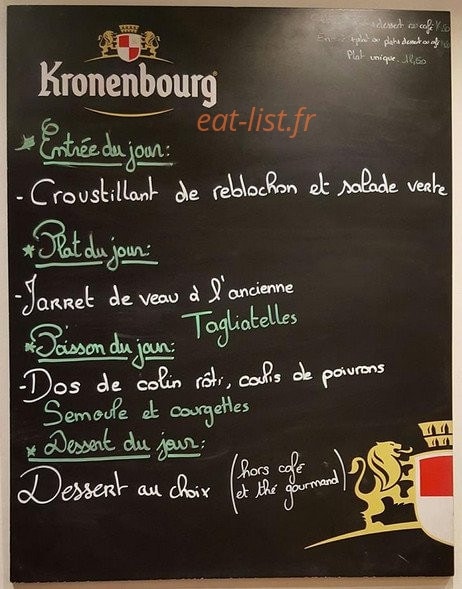 dessert ou café
plat ou plat dessert ou café
Plat unique
Kronenbourg
eat-list.fr
* Entrée du jour:
- Croustillant de reblochon et salade verte
* Plat du jour:
- Jarret de veau à l'ancienne
Tagliatelles
* Poisson du jour:
- Dos de colin rôti, coulis de poivrons
Semoule et courgettes
* Dessert du jour:
Dessert au choix (hors café
et thé gourmand)